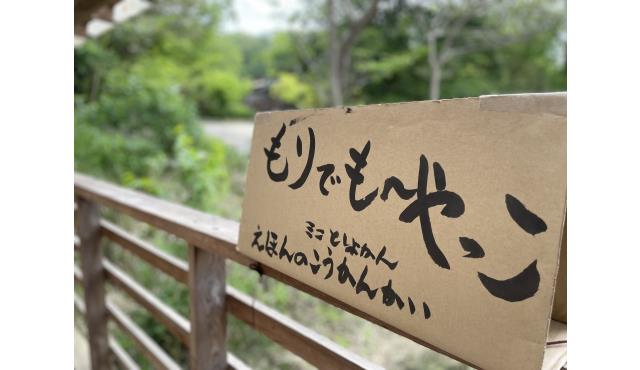 もりでも〜やっこ
ミニとしょかん
えほんのこうかんかい